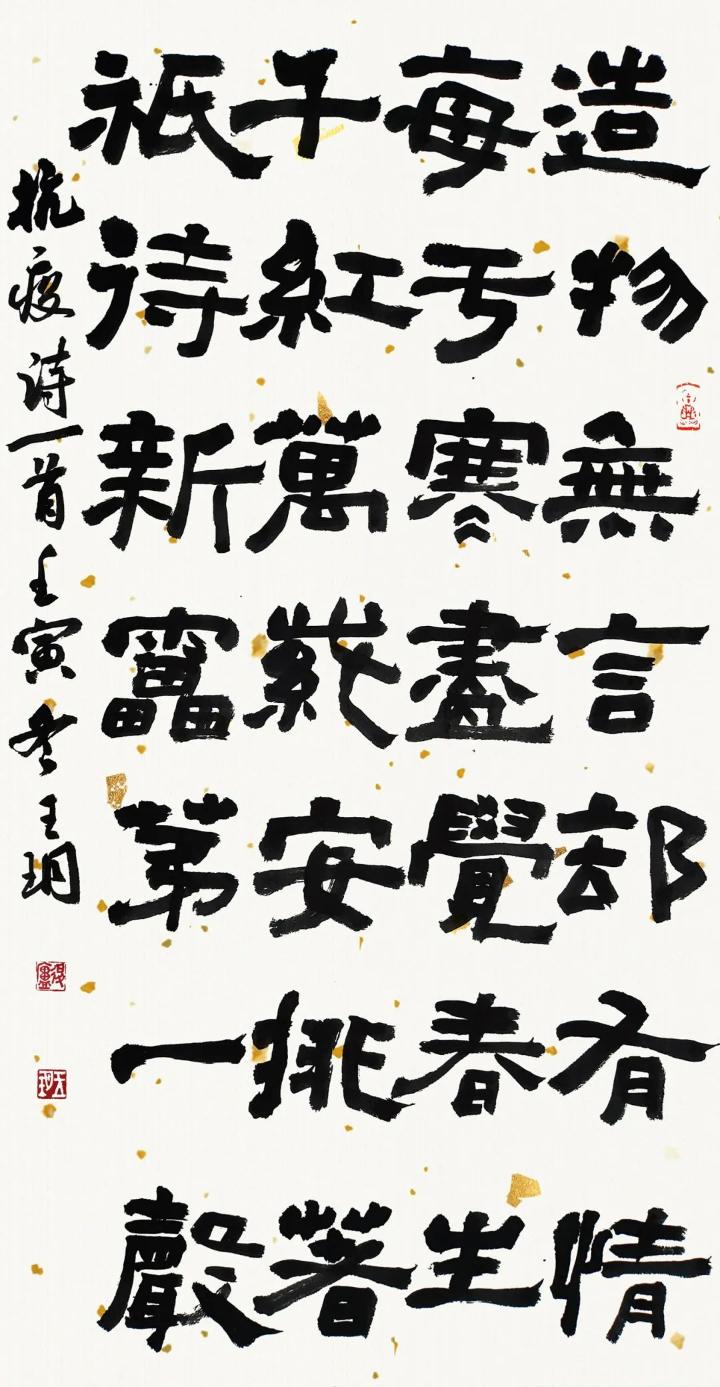 造物無言却有情
每于寒盡覺春生
千紅萬紫安排著
祇待新靁苐一聲
抗疫诗一首壬寅冬王